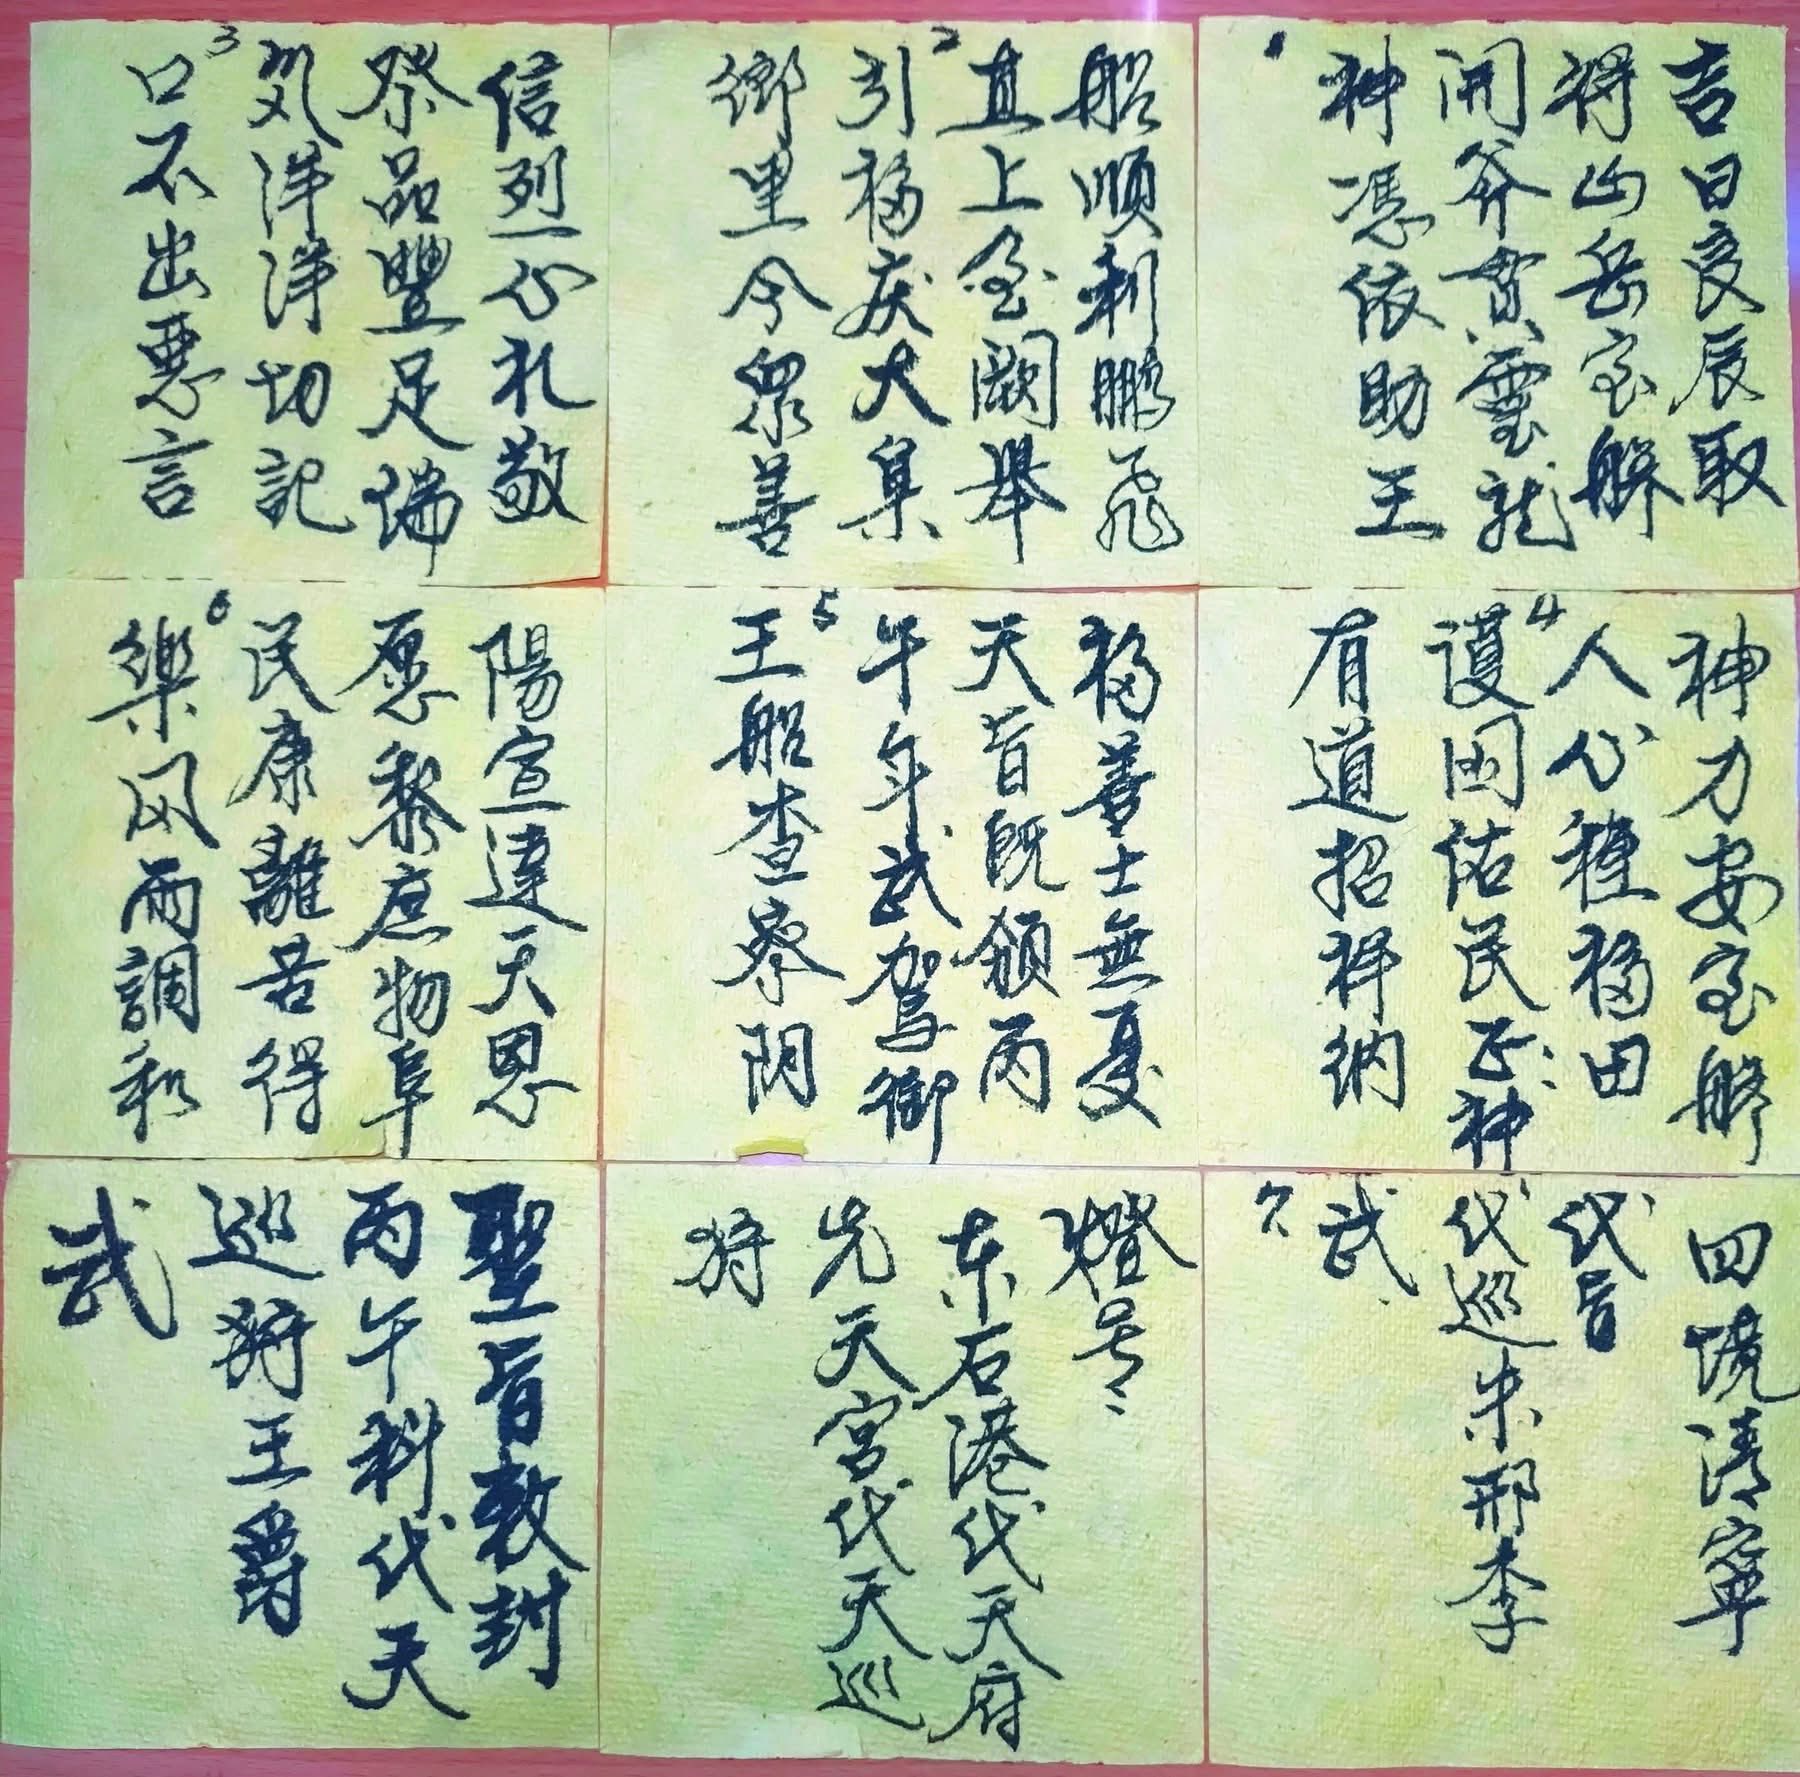 1
吉日良辰取
得山岳宝艍
開斧贯雲龍
神憑依助王
2
船顺利鵬飛
直上金闕舉
引福庆大集
鄉里今衆善
3
信烈心礼敬
祭品豐足端
気洋洋切記
口不出悪言
4
神力安宝艍
人心種福田
護国佑民正神
有道招祥纳
5
福善士無憂
天旨既领丙
午年武驾御
王船查察阴
6
陽宣達天恩
愿黎庶物阜
民康離苦得
樂风雨調和
7
四境清寧
代旨
代巡朱邢李
武
燈号:
东石港代天府
先天宮代天巡
狩
聖旨敕封
丙午科代天
巡狩王爵
武